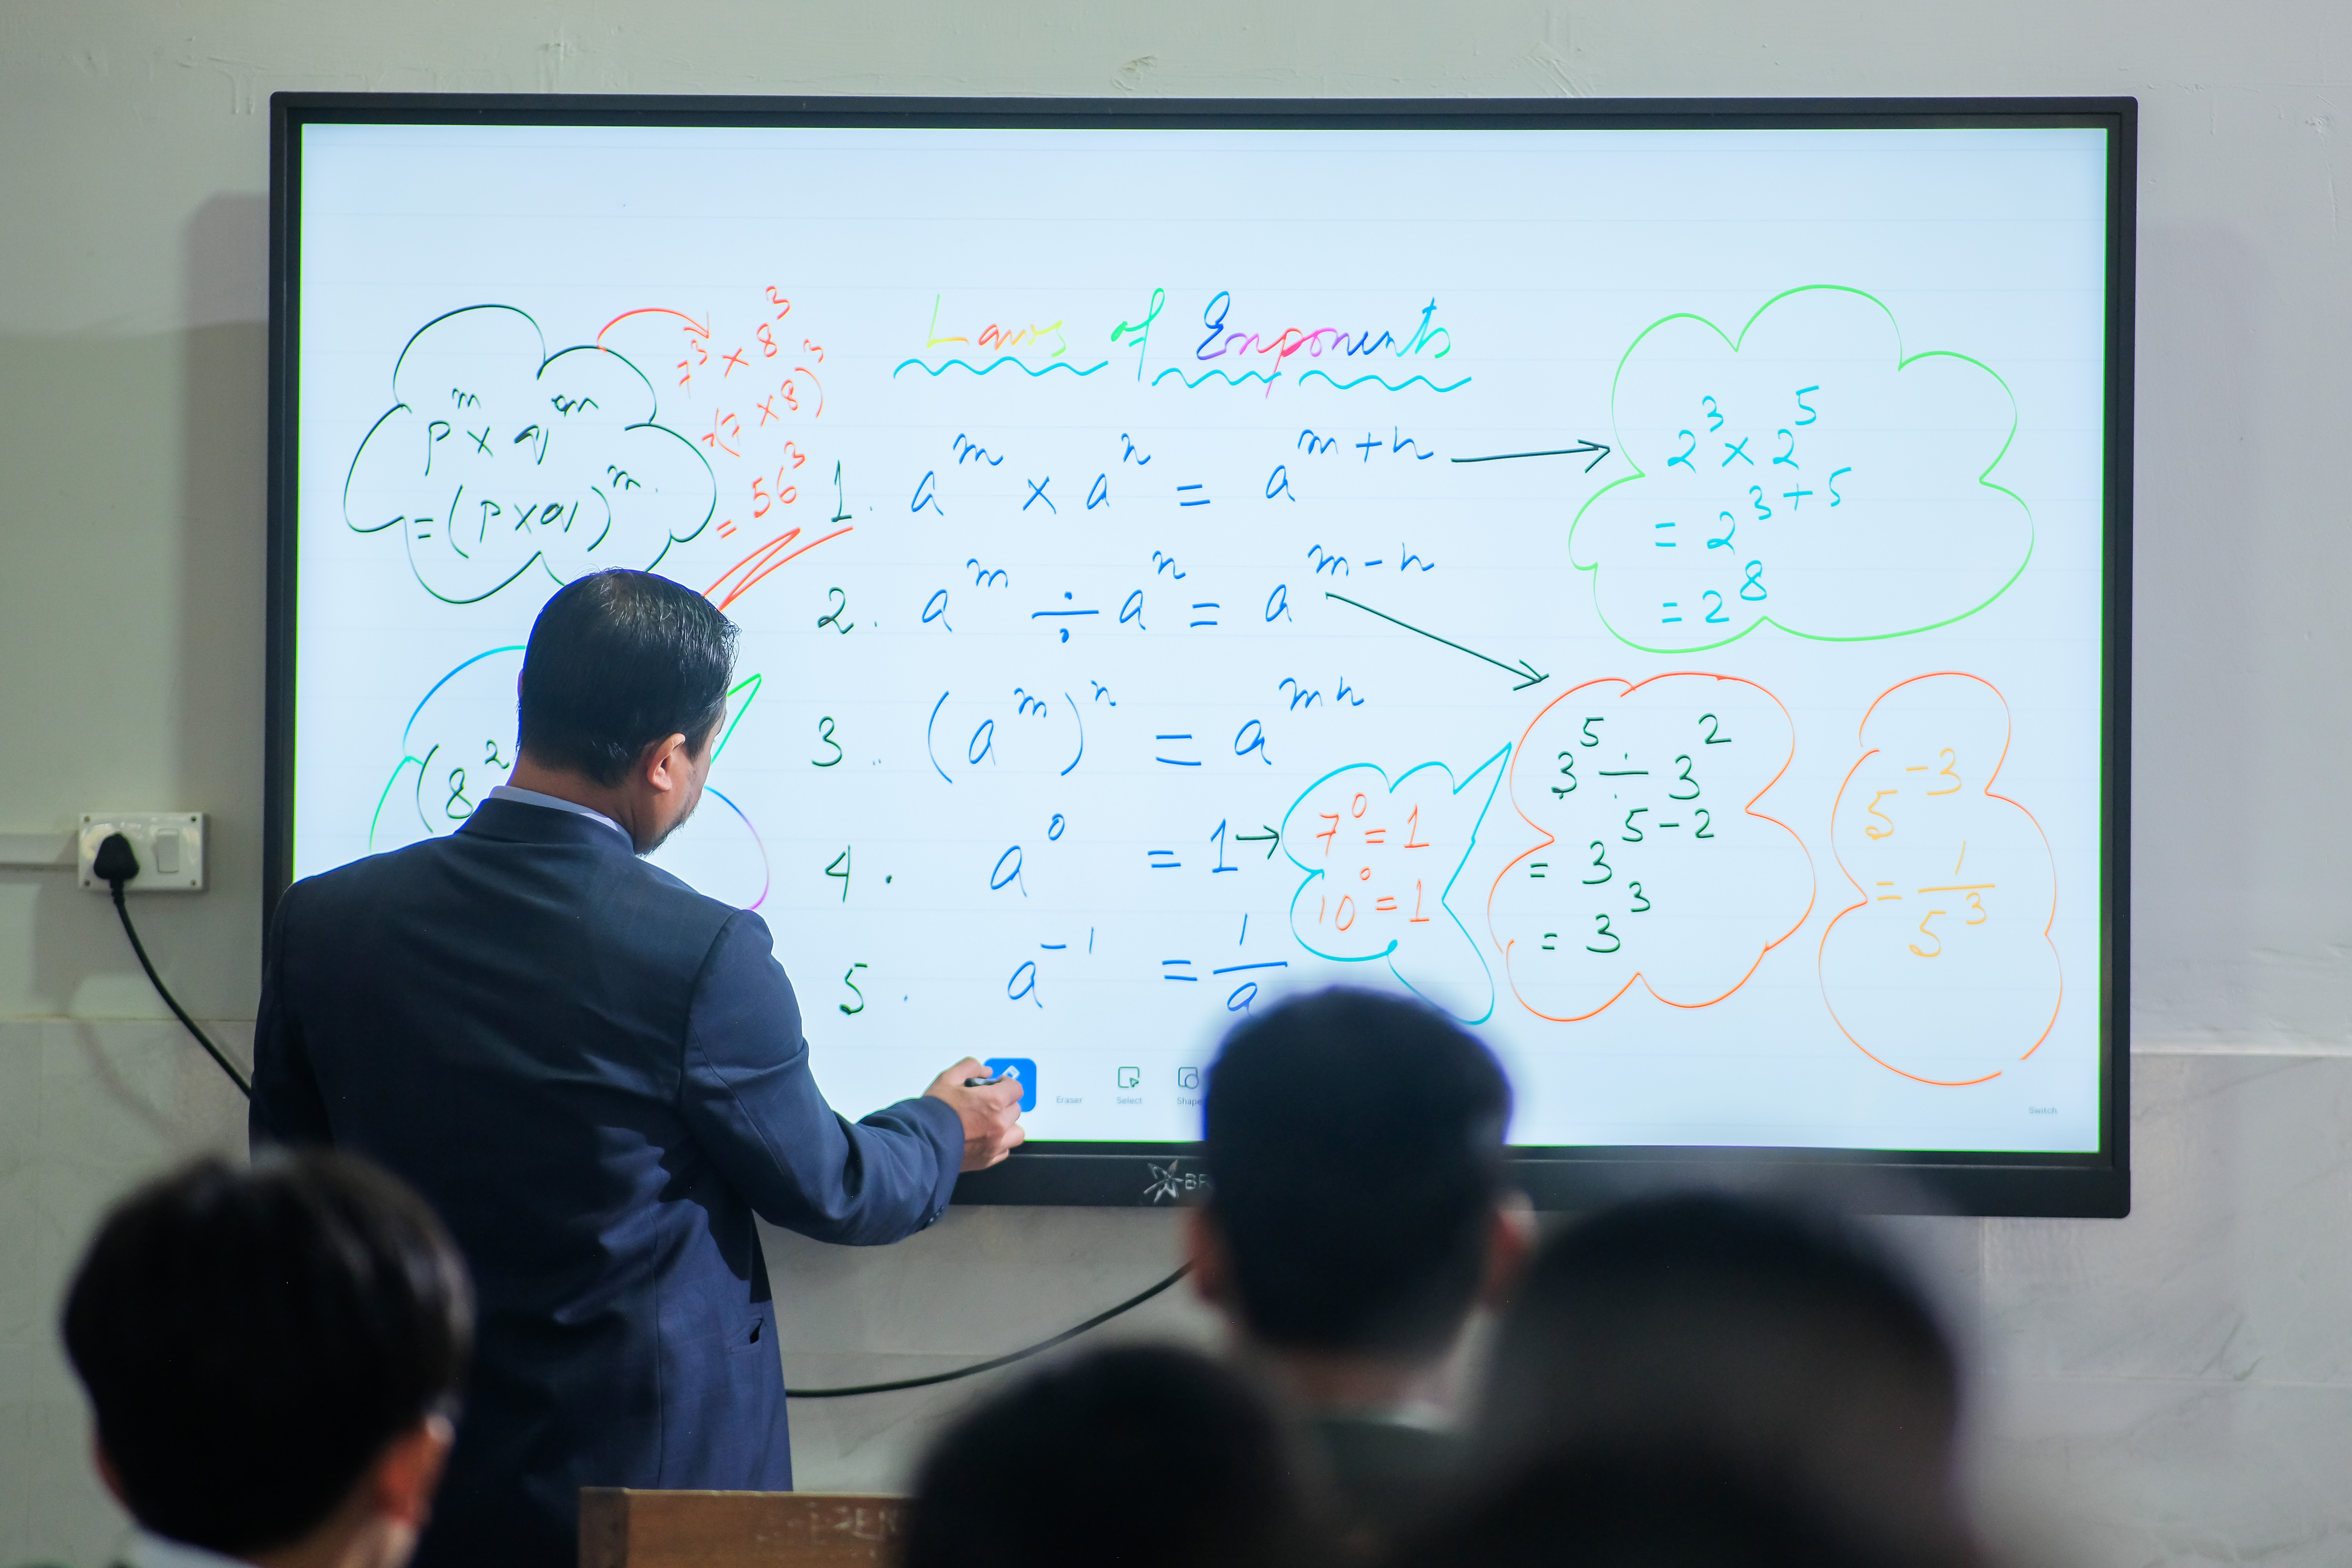 Laws of Exponents
p^m × q^m
= (p × q)^m.
7^3 × 8^3
= (7 × 8)^3
= 56^3
1. a^m × a^n = a^{m+n}
2^3 × 2^5
= 2^{3+5}
= 2^8
2. a^m ÷ a^n = a^{m-n}
3^5 ÷ 3^2
= 3^{5-2}
= 3^3
3. (a^m)^n = a^{mn}
(8^2
4. a^0 = 1
7^0 = 1
10^0 = 1
5. a^{-1} = 1/a
5^{-3}
= 1/5^3
Eraser Select Shape
Switch